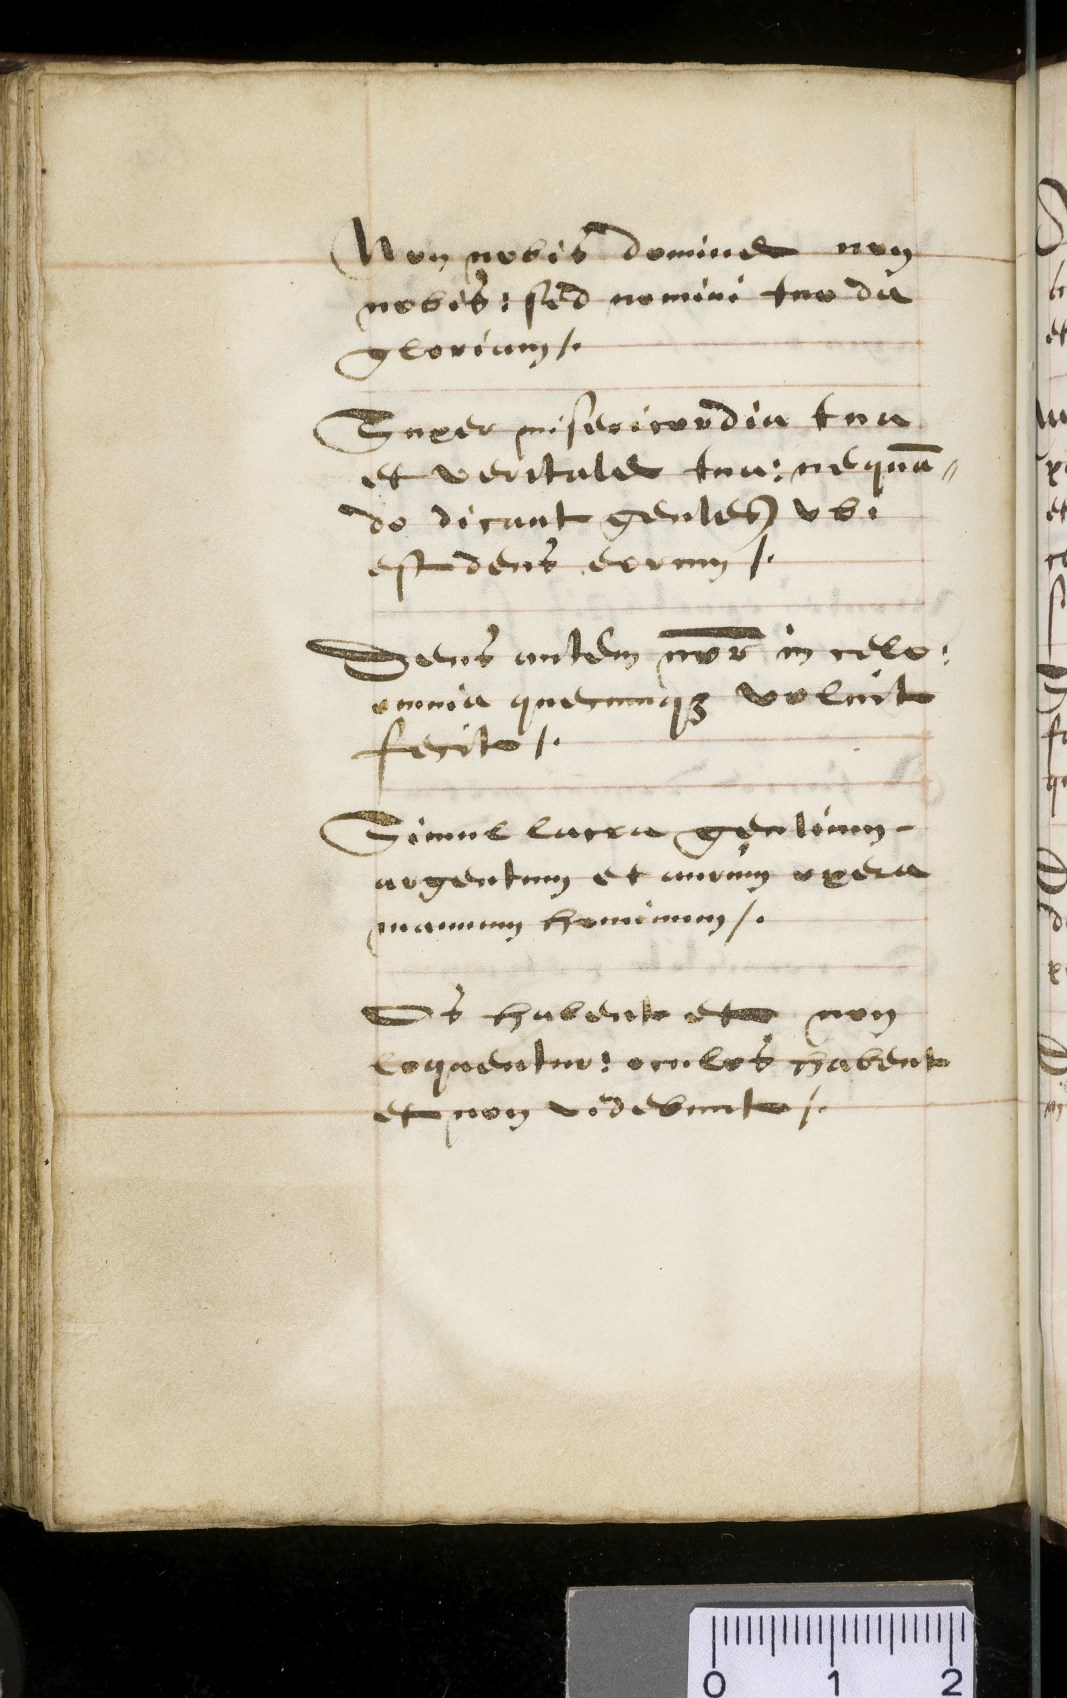 Non nobis domine non
nobis: sed nomini tuo da
gloriam/.
Super misericordia tua
et veritate tua: nequā〃
do dicant gentes vbi
est deus eorum /.
Deus autem nr̄ in celo:
omnia quecunqꝫ voluit
fecit /.
Simullacra gentium-
argentum et aurum opera
manuum hominum/.
Os habent et non
loquentur: oculos habent
et non videbunt /.
0 1 2